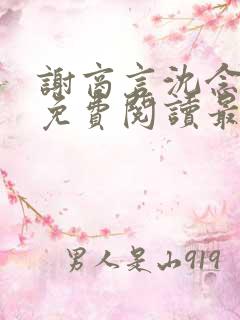 謝商言沈念
免費閱讀最
男人是山919